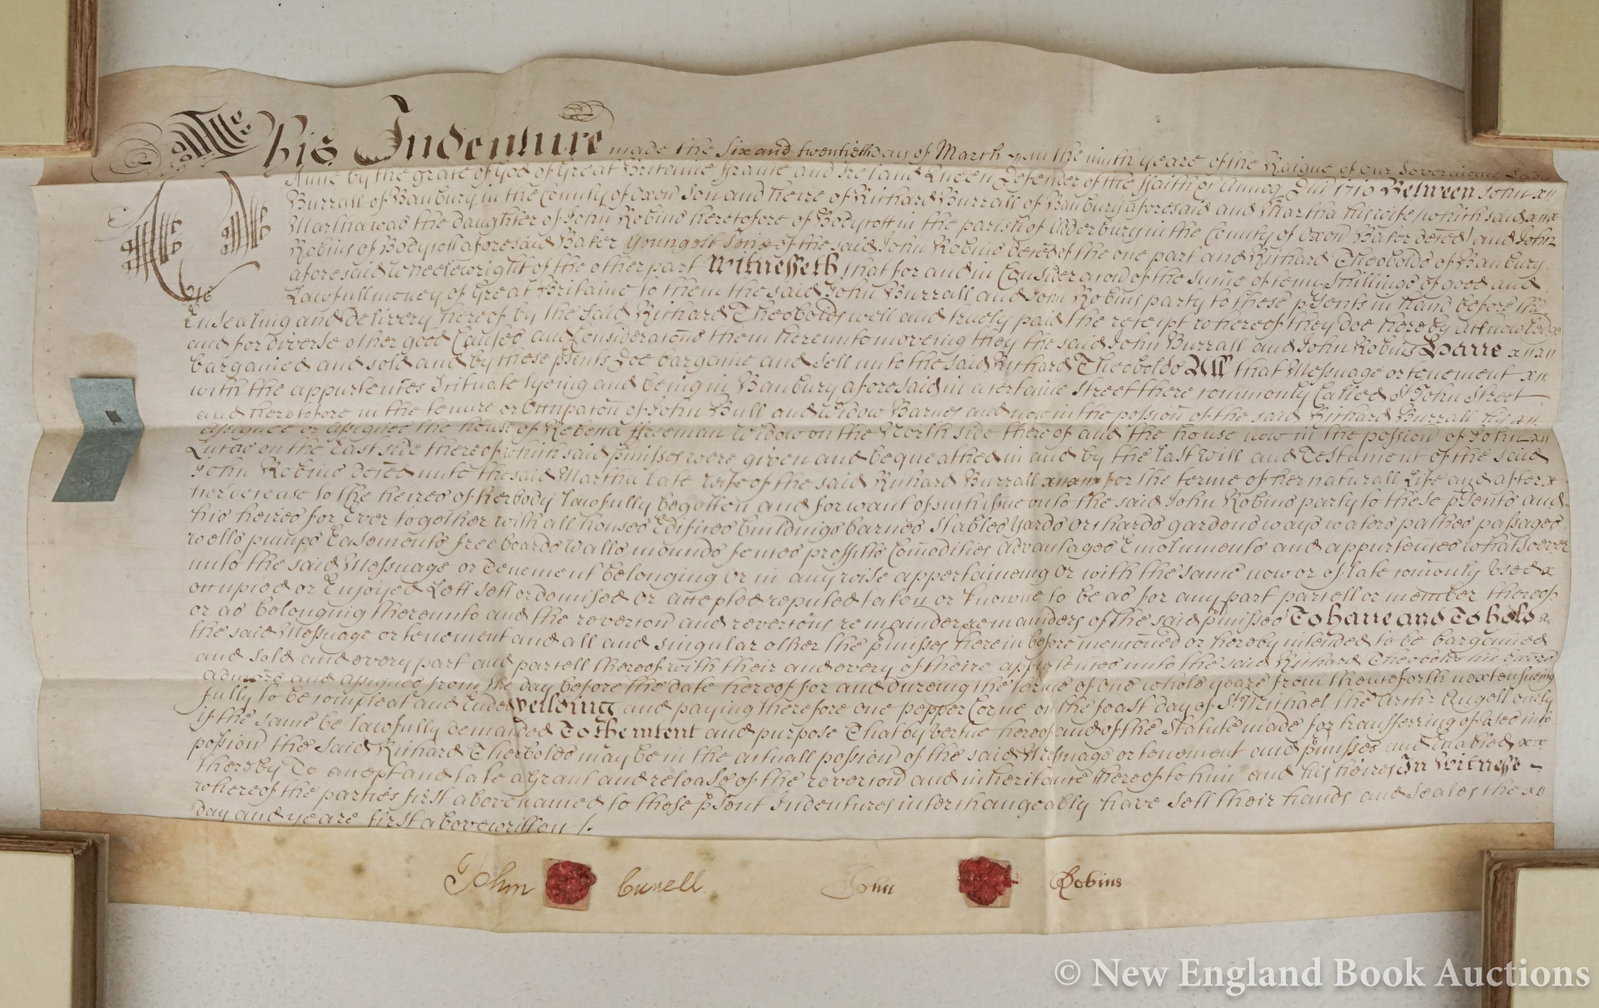 This Indenture made the Six and twentieth day of March in the ninth yeare of the Raigne of our Soveraigne Lady
Anne by the grace of God of Great Britaine France and Ireland Queen Defender of the ffaith &c Annoq Dni 1710 Between John
Burrall of Banbury in the County of Oxon Son and heire of Richard Burrall of Banbury aforesaid and Martha his wife (which said
Martha was the daughter of John Robins heretofore of Bodycott in the parish of Adderbury in the County of Oxon Baker deced) and John
Robins of Bodycott aforesaid Baker Youngest Sone of the said John Robins deced of the one part and Richard Theobolds of Banbury
aforesaid Wheelewright of the other part Witnesseth that for and in Consideracon of the sume of Shillings of good and
Lawfull money of Great Britaine to them the said John Burrall and John Robins party to these psents in hand before the
Ensealing and delivery hereof by the said Richard Theobolds well and truely paid the receipt whereof they doe hereby acknowledge
and for diverse other good Causes and Consideracons them thereunto moveing they the said John Burrall and John Robins Have
bargained and sold and by these psents Doe bargaine and sell unto the said Richard Theobolds All that Messuage or tenement
with the appurtences scituate lyeing and being in Banbury aforesaid in a certaine street there comonly Called St John Street
and heretofore in the tenure or occupacon of John Bull and Widow Barnes and now in the possion of the said Richard Burrall his
assignee or assignes the house of ffreeman Widow on the North side thereof and the house now in the possion of John
on the East side thereof which said pmisses were given and bequeathed in and by the last will and Testament of the said
John Robins deced unto the said Martha late wife of the said Richard Burrall for the terme of her naturall Life and after
her decease to the heires of her body lawfully begotten and for want of such issue unto the said John Robins party to these psents and
his heires for Ever together with all houses Edifices buildings barnes Stables Yards Orchards gardens ways waters pathes passages
wells pumps Easements freeboards Walls mounds fences proffitts Comodities Advantages Emoluments and appurtences whatsoever
unto the said Messuage or Tenement belonging or in any wise appertaineing or with the same now or of late comonly Used
occupied or Enjoyed Lett sett or demised or accepted reputed taken or knowne to be as for any part parcell or member thereof
or as belonging thereunto and the revercon and revercons remainder remainders of the said pmisses To have and To hold
the said Messuage or tenement and all and singular other the pmisses herein before menconed or hereby intended to be bargained
and sold and every part and parcell thereof with their and every of theire appurtences unto the said Richard Theobolds his Execrs
admrs and assignes from the day before the date hereof for and dureing the terme of One whole yeare from thenceforth next ensueing
fully to be compleat and Ended Yeilding and paying therefore one pepper Corne on the feast day of St Michael the Arch Angell only
if the same be lawfully demanded To the intent and purpose That by vertue hereof and of the Statute made for transferring of Uses into
possion the said Richard Theobolds may be in the actuall possion of the said Messuage or tenement and pmisses and Enabled
thereby To accept and take a Grant and release of the revercon and inheritance thereof to him and his heires In Witnesse
whereof the parties first above named to these psent Indentures interchangeably have sett their hands and Seales the
day and yeare first above written
John Burrell John Robins
© New England Book Auctions